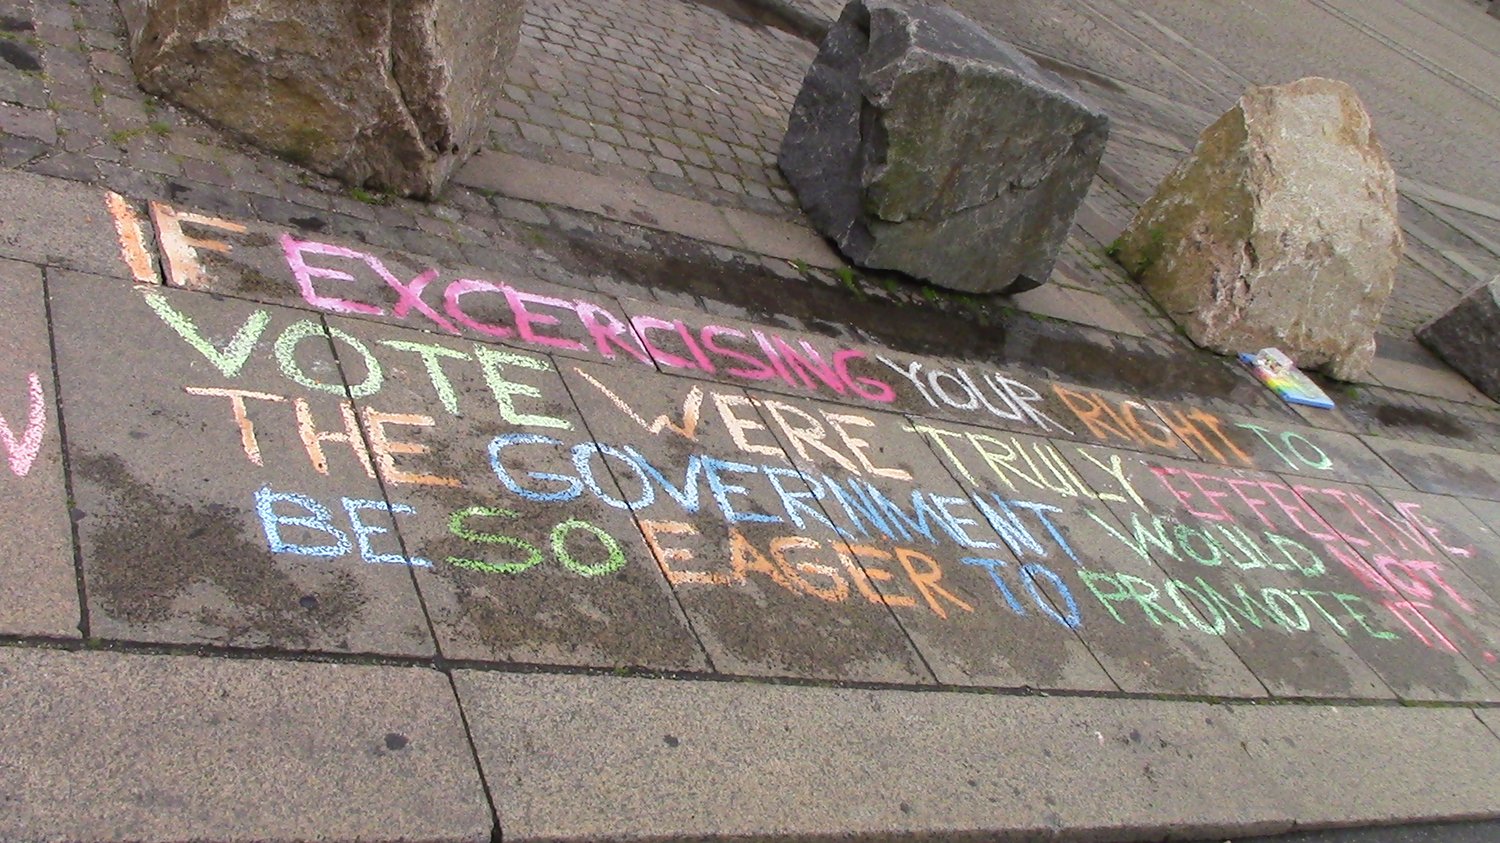 IF EXCERCISING YOUR RIGHT TO
VOTE WERE TRULY EFFECTIVE
THE GOVERNMENT WOULD NOT
BE SO EAGER TO PROMOTE IT.